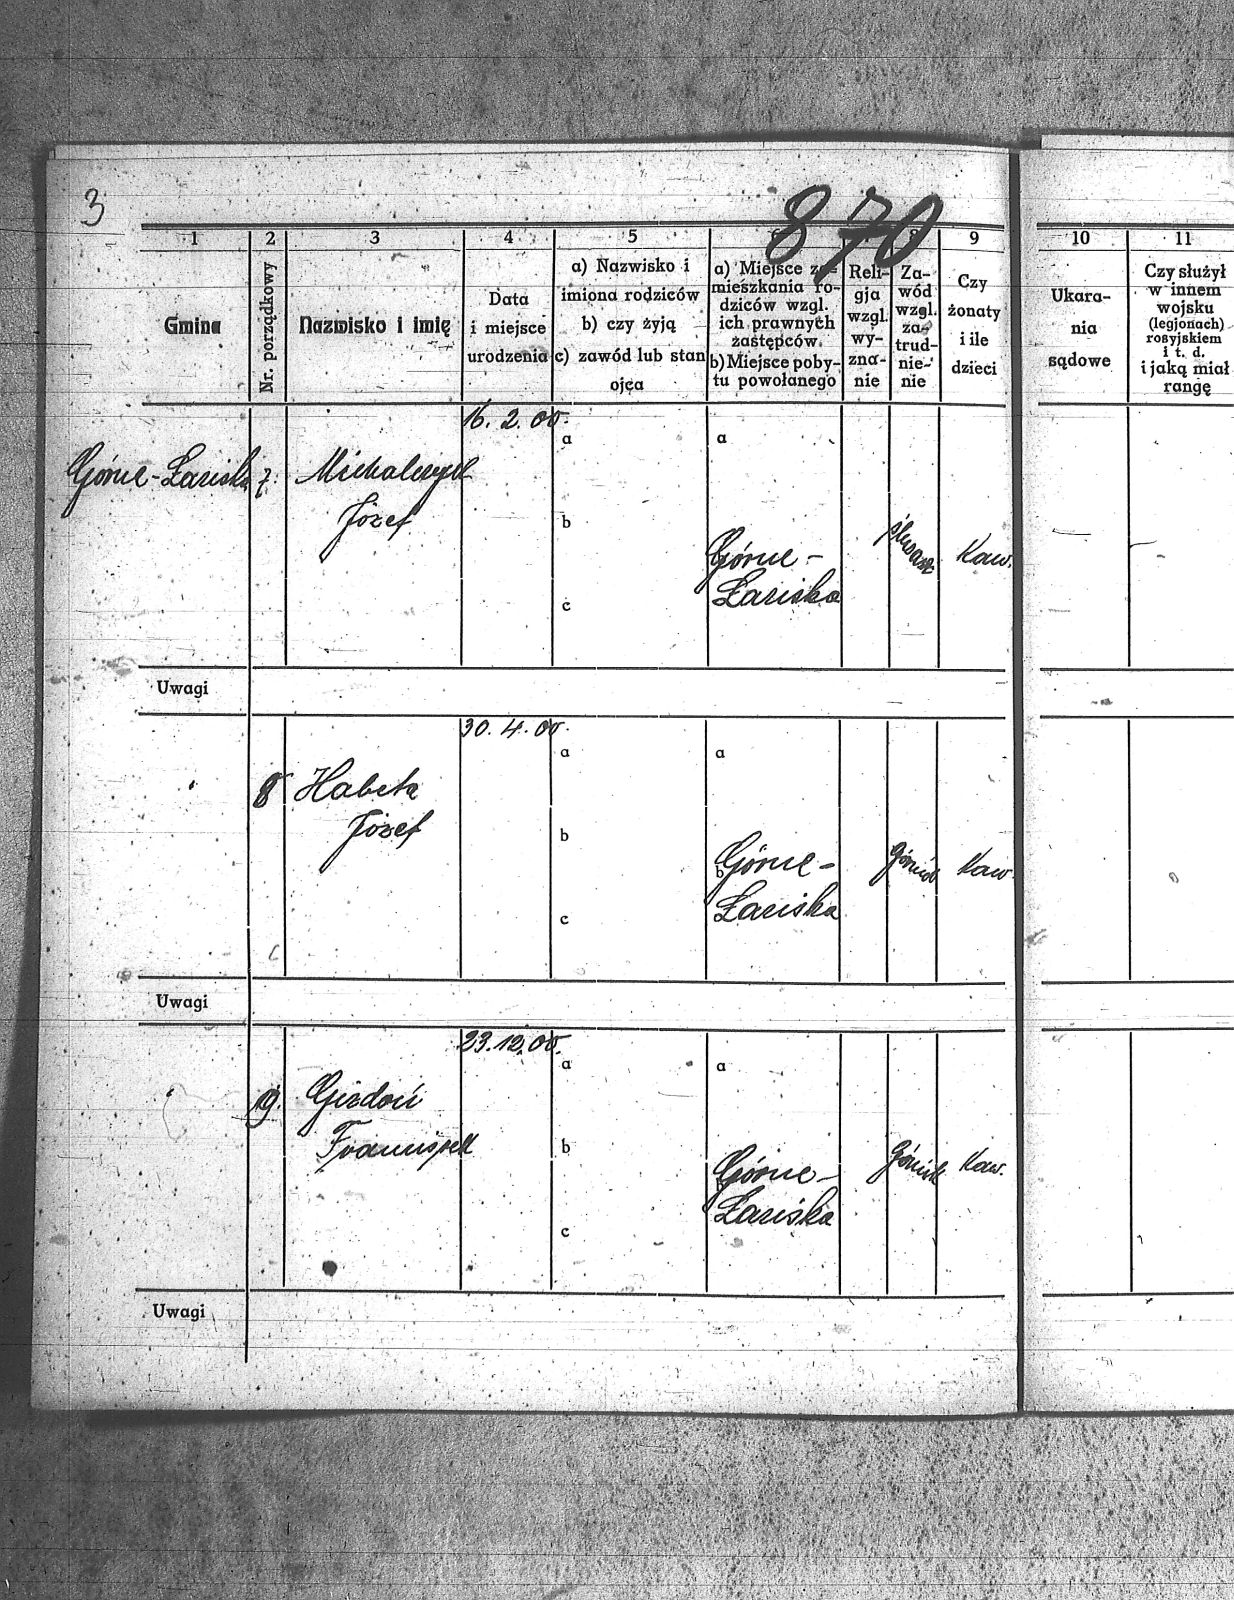 3
870
1
2
3
4
5
6
8
9
10
11
Gmina
Nr. porządkowy
Nazwisko i imię
Data
i miejsce
urodzenia
a) Nazwisko i
imiona rodziców
b) czy żyją
c) zawód lub stan
ojca
a) Miejsce za=
mieszkania ro-
dziców wzgl.
ich prawnych
zastępców
b) Miejsce poby-
tu powołanego
Reli-
gja
wzgl.
wy-
zna-
nie
Za-
wód
wzgl.
za-
trud-
nie-
nie
Czy
żonaty
i ile
dzieci
Ukara-
nia
sądowe
Czy służył
w innem
wojsku
(legjonach)
rosyjskiem
i t. d.
i jaką miał
rangę
16. 2. 00.
a
a
Górne-Łaziska
7.
Michalczyk
Józef
b
Górne-
Łaziska
Kaw.
c
Uwagi
30. 4. 00.
a
a
8
Józef
b
b
Górne-
Łaziska
Górnik
Kaw.
c
Uwagi
23. 12. 00.
a
a
9.
Gizdoń
Franciszek
b
b
Górne-
Łaziska
Górnik
Kaw.
c
Uwagi